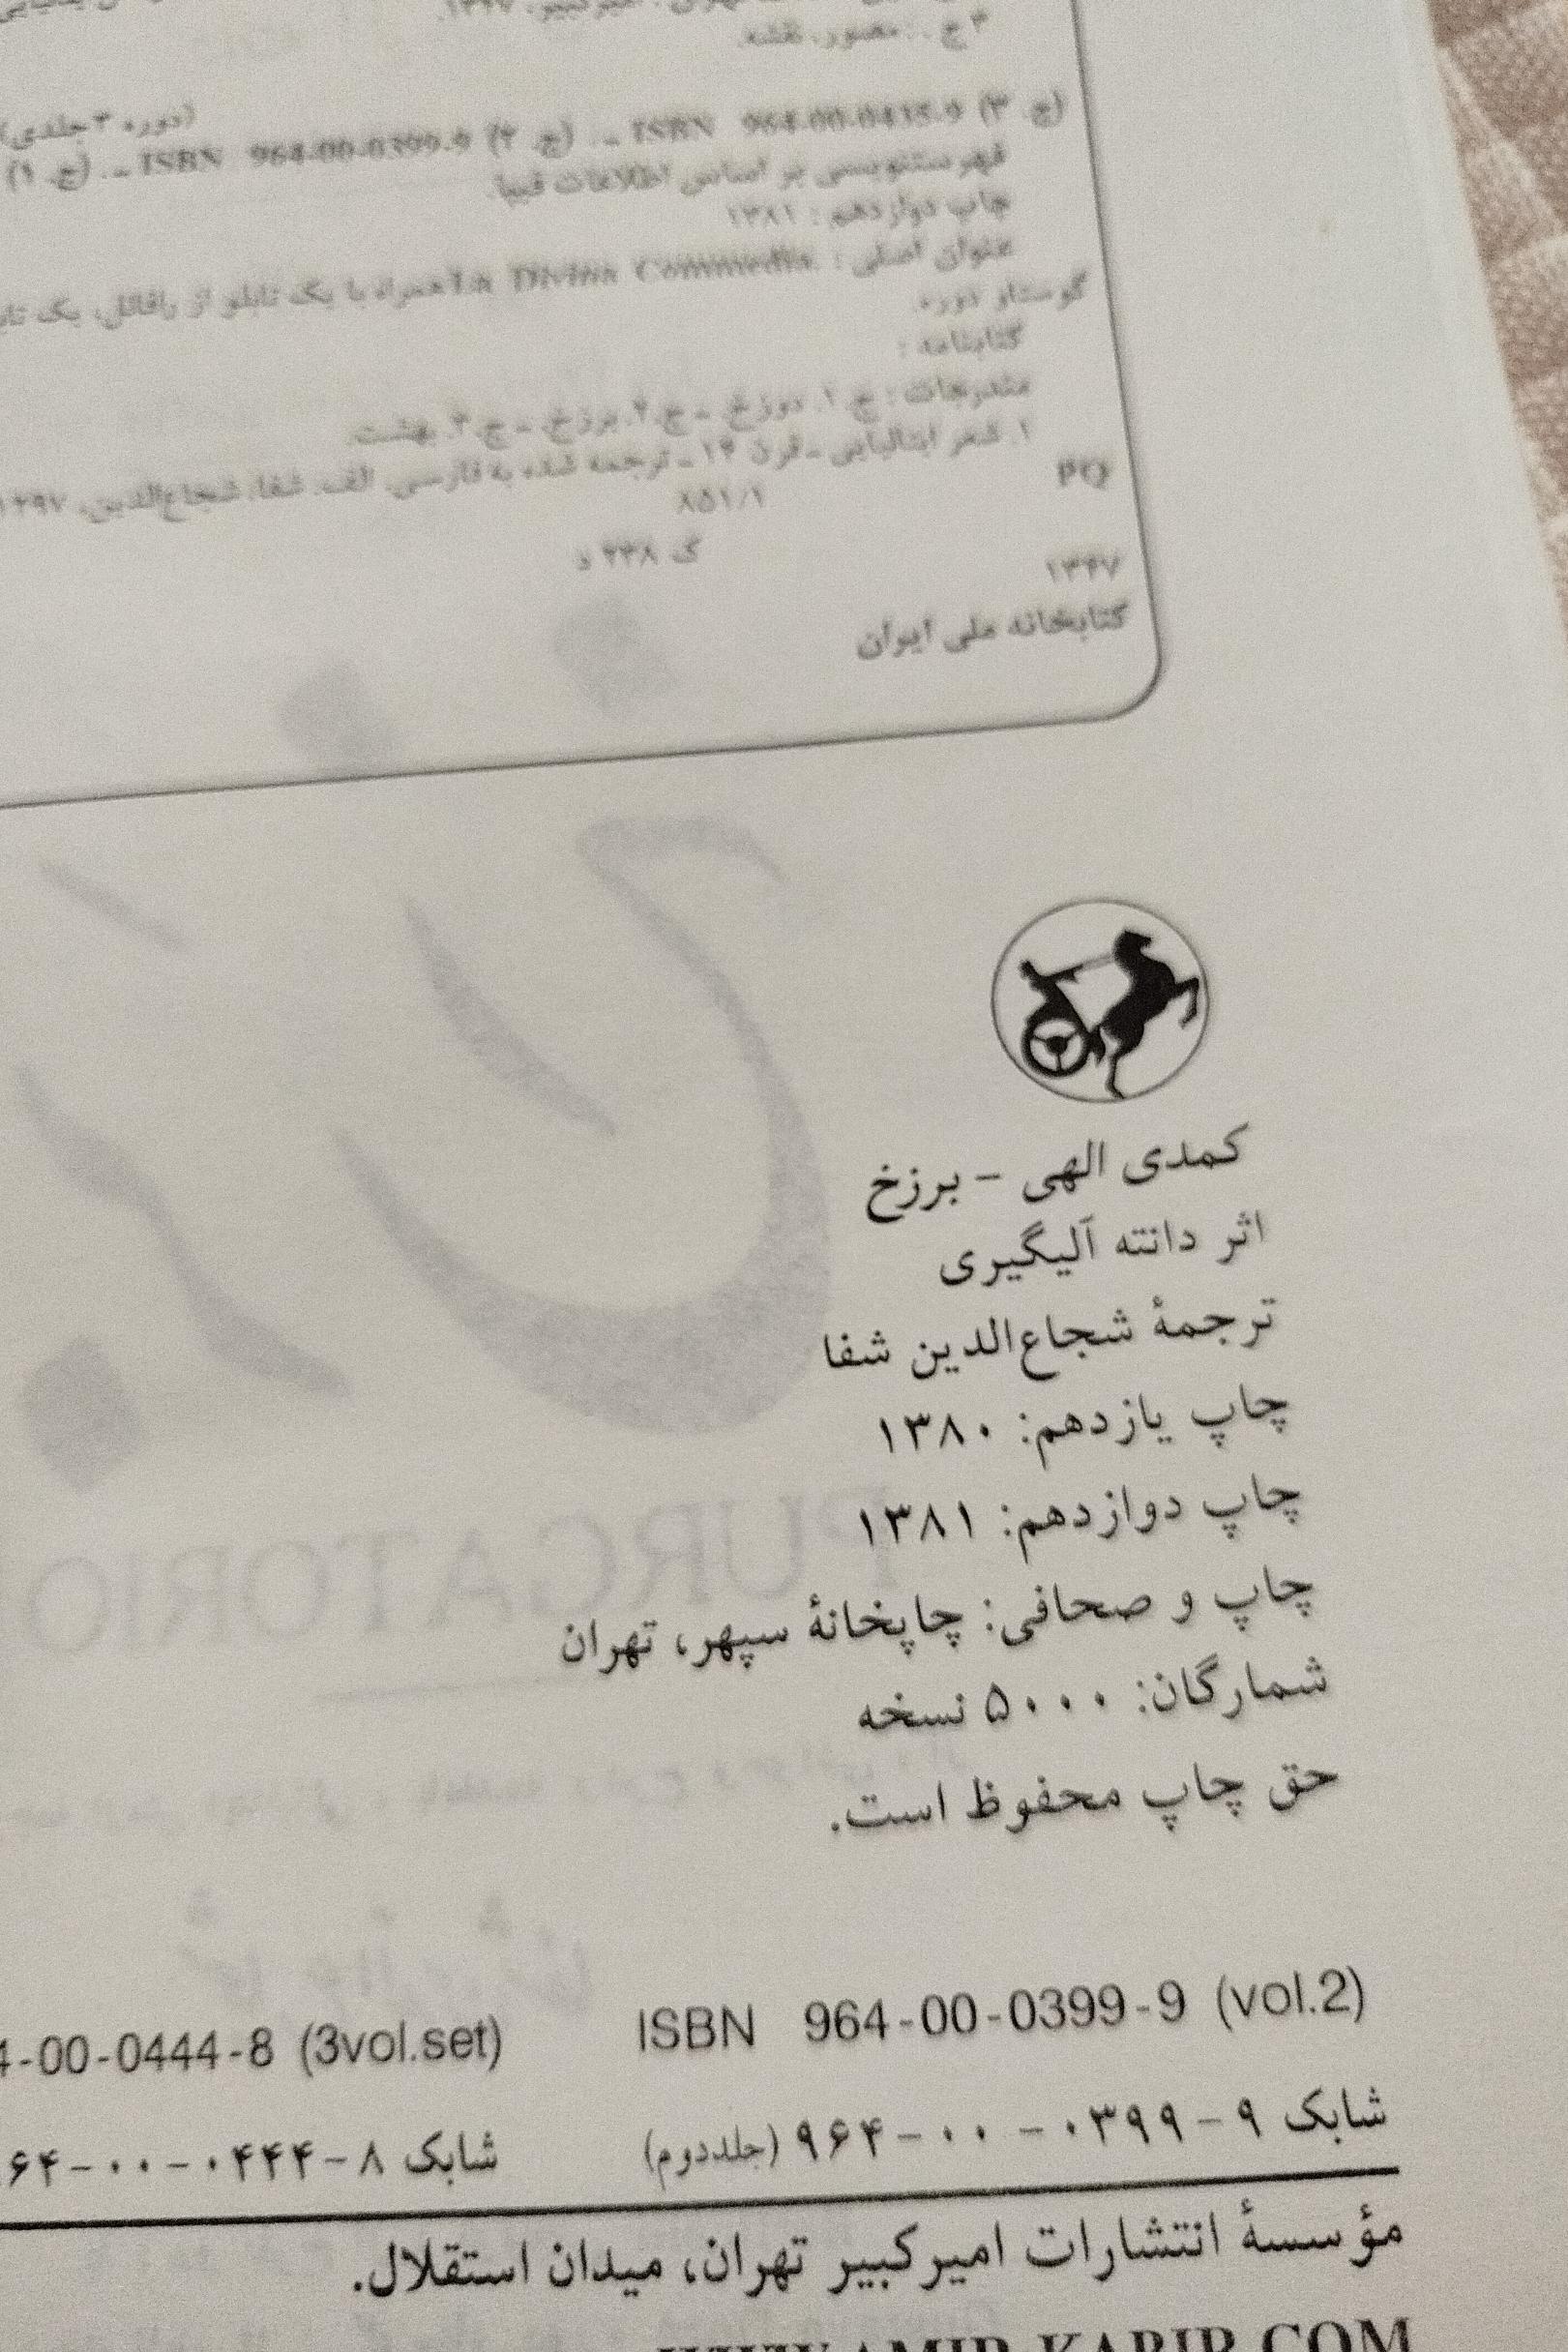 ۳ ج. : مصور، نقشه.
(دوره ۳ جلدی)
(ج. ۳) ISBN 964-00-0435-9 ـ. (ج. ۲) ISBN 964-00-0399-9 ـ. (ج. ۱)
فهرستنویسی بر اساس اطلاعات فیپا.
چاپ دوازدهم : ۱۳۸۱
عنوان اصلی : La Divina Commedia. همراه با یک تابلو از رافائل، یک
گوستاو دوره.
کتابنامه :
مندرجات : ج. ۱. دوزخ. ـ ج. ۲. برزخ. ـ ج. ۳. بهشت.
۱. شعر ایتالیایی ـ قرن ۱۴ ـ ترجمه شده به فارسی. الف. شفا، شجاع‌الدین، ۱۲۹۷
PQ ۸۵۱/۱
ک ۲۳۸ د
۱۳۴۷
کتابخانه ملی ایران
کمدی الهی - برزخ
اثر دانته آلیگیری
ترجمهٔ شجاع‌الدین شفا
چاپ یازدهم: ۱۳۸۰
چاپ دوازدهم: ۱۳۸۱
چاپ و صحافی: چاپخانهٔ سپهر، تهران
شمارگان: ۵۰۰۰ نسخه
حق چاپ محفوظ است.
4-00-0444-8 (3vol.set) ISBN 964-00-0399-9 (vol.2)
شابک ۹-۰۳۹۹-۰۰-۹۶۴ (جلددوم) شابک ۸-۰۴۴۴-۰۰-۶۴
مؤسسهٔ انتشارات امیرکبیر تهران، میدان استقلال.
WWW.AMIR-KABIR.COM